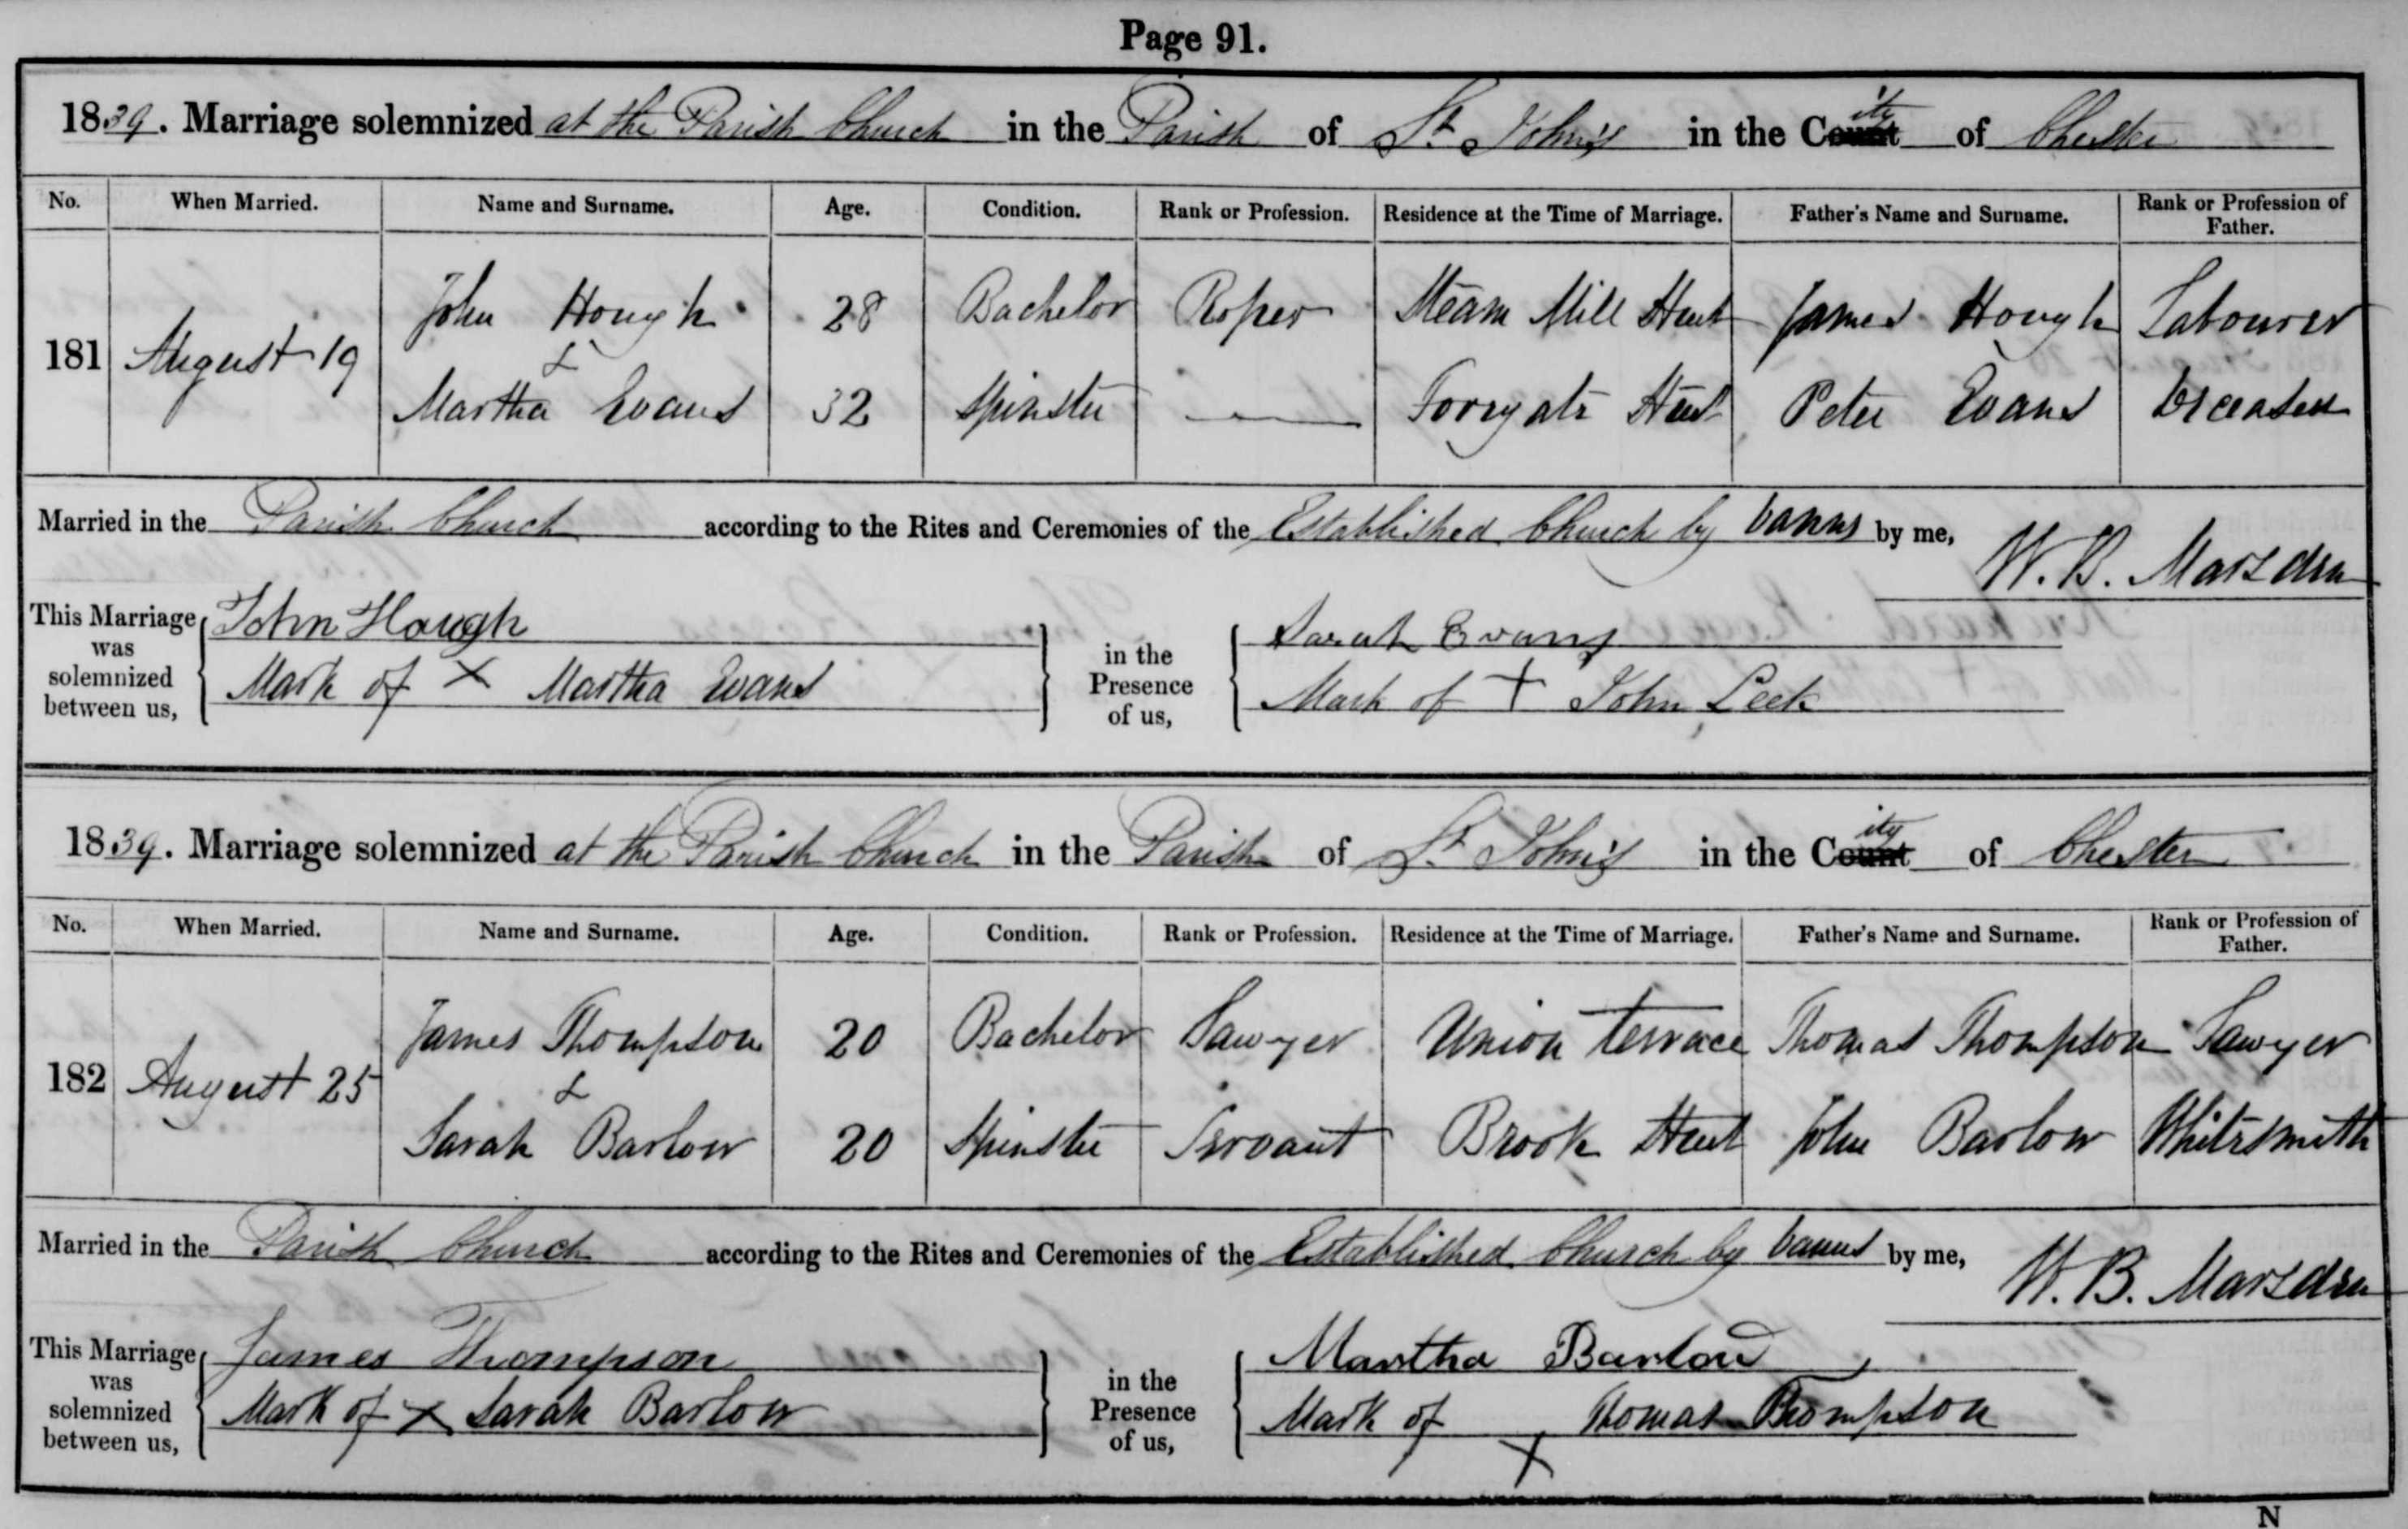 Page 91.
1839. Marriage solemnized at the Parish Church in the Parish of St. John's in the City of Chester
No. When Married. Name and Surname. Age. Condition. Rank or Profession. Residence at the Time of Marriage. Father's Name and Surname. Rank or Profession of Father.
John Hough 28 Bachelor Roper Steam Mill Street James Hough Labourer
181 August 19 &
Martha Evans 32 Spinster — Forrgate Street Peter Evans Deceased
Married in the Parish Church according to the Rites and Ceremonies of the Established Church by banns by me, W. B. Marsden
This Marriage was solemnized between us, John Hough in the Presence of us, Sarah Evans
Mark of X Martha Evans Mark of + John Leek
1839. Marriage solemnized at the Parish Church in the Parish of St. John's in the City of Chester
No. When Married. Name and Surname. Age. Condition. Rank or Profession. Residence at the Time of Marriage. Father's Name and Surname. Rank or Profession of Father.
James Thompson 20 Bachelor Sawyer Union terrace Thomas Thompson Sawyer
182 August 25 &
Sarah Barlow 20 Spinster Servant Brook Street John Barlow Whitesmith
Married in the Parish Church according to the Rites and Ceremonies of the Established Church by banns by me, W. B. Marsden
This Marriage was solemnized between us, James Thompson in the Presence of us, Martha Barlow
Mark of X Sarah Barlow Mark of X Thomas Thompson
N